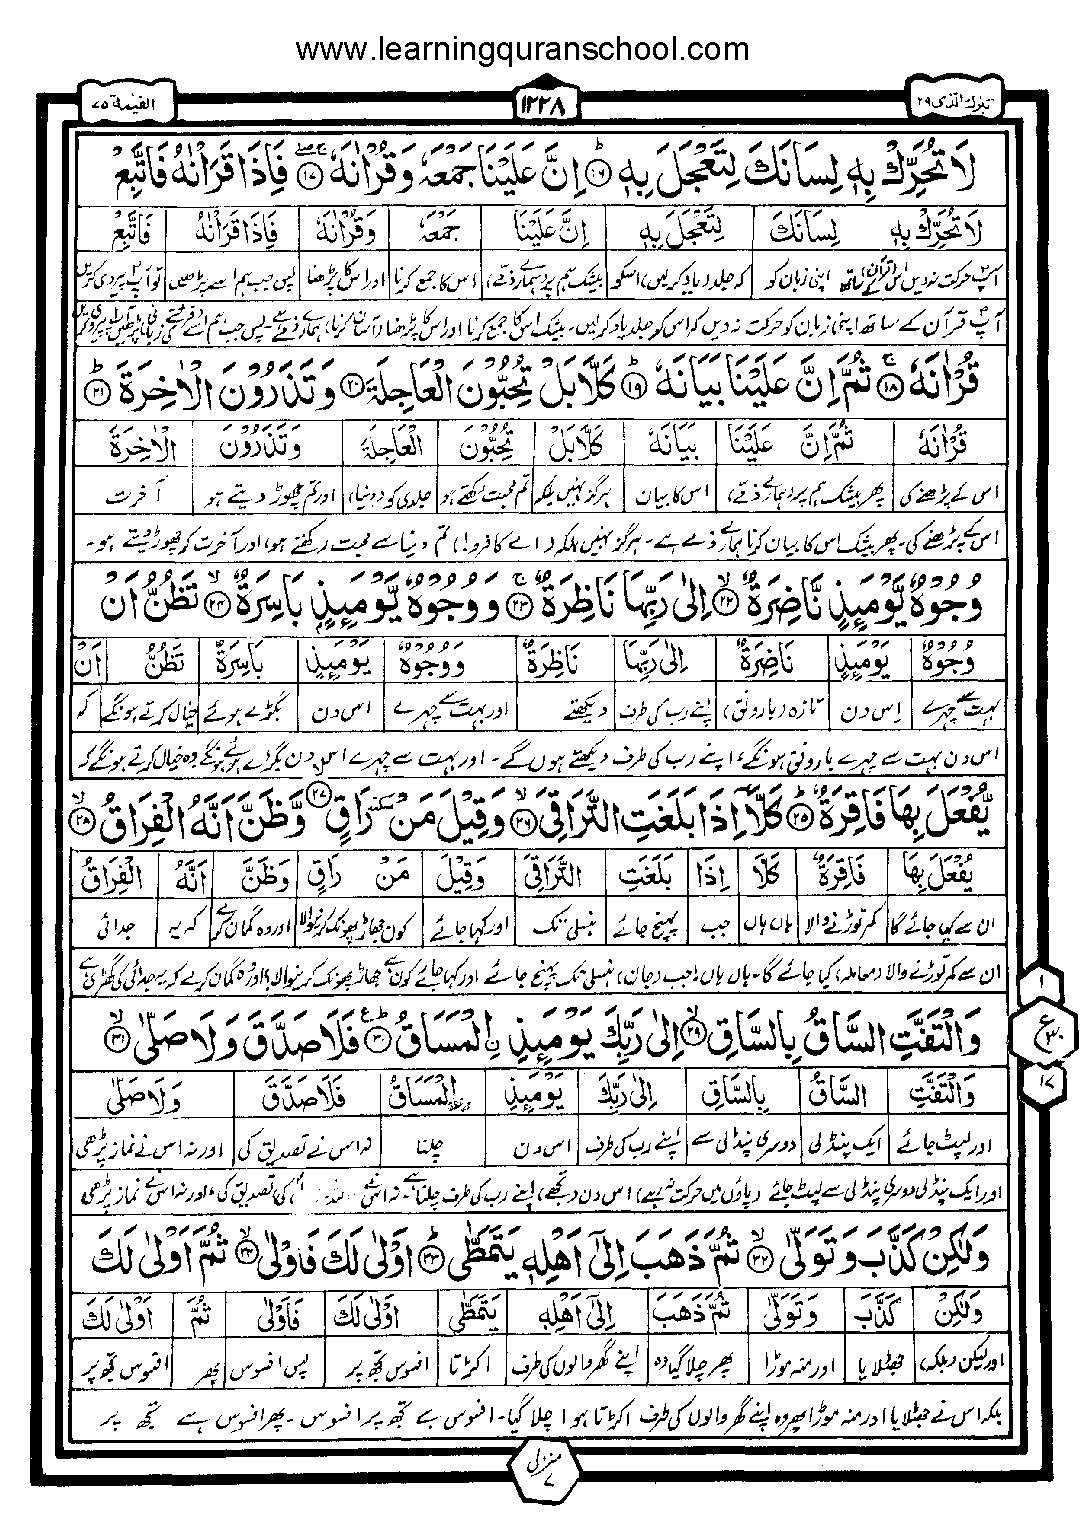 www.learningquranschool.com
تبٰرك الذی ٢٩ ١٢٢٨ القیٰمة ٧٥
لَا تُحَرِّكْ بِهٖ لِسَانَكَ لِتَعْجَلَ بِهٖ ۝١٦ اِنَّ عَلَيْنَا جَمْعَهٗ وَ قُرْاٰنَهٗ ۝١٧ فَاِذَا قَرَاْنٰهُ فَاتَّبِعْ
لَا تُحَرِّكْ بِهٖ لِسَانَكَ لِتَعْجَلَ بِهٖ اِنَّ عَلَيْنَا جَمْعَهٗ وَقُرْاٰنَهٗ فَاِذَا قَرَاْنٰهُ فَاتَّبِعْ
آپ حرکت نہ دیں اس قرآن کے ساتھ اپنی زبان کو کہ جلد (یاد کرلیں) اسکو بیشک ہم پر (ہمارے ذمے) اس کا جمع کرنا اور اس کا پڑھنا پس جب ہم اسے پڑھیں تو آپ پیروی کریں
آپ قرآن کے ساتھ اپنی زبان کو حرکت نہ دیں کہ اس کو جلد یاد کرلیں۔ بیشک اس کا جمع کرنا اور اس کا پڑھنا (آسان کرنا) ہمارے ذمے ہے۔ پس جب ہم اسے
قُرْاٰنَهٗ ۝١٨ ثُمَّ اِنَّ عَلَيْنَا بَيَانَهٗ ۝١٩ كَلَّا بَلْ تُحِبُّوْنَ الْعَاجِلَةَ ۝٢٠ وَ تَذَرُوْنَ الْاٰخِرَةَ ۝٢١
قُرْاٰنَهٗ ثُمَّ اِنَّ عَلَيْنَا بَيَانَهٗ كَلَّا بَلْ تُحِبُّوْنَ الْعَاجِلَةَ وَتَذَرُوْنَ الْاٰخِرَةَ
اس کے پڑھنے کی پھر بیشک ہم پر (ہمارے ذمے) اس کا بیان ہرگز نہیں بلکہ تم محبت رکھتے ہو جلدی کو (دنیا) اور تم چھوڑ دیتے ہو آخرت
اس کے پڑھنے کی۔ پھر بیشک اس کا بیان کرنا ہمارے ذمے ہے۔ ہرگز نہیں بلکہ (اے کافرو!) تم دنیا سے محبت رکھتے ہو، اور آخرت کو چھوڑ دیتے ہو۔
وُجُوْهٌ يَّوْمَىِٕذٍ نَّاضِرَةٌ ۝٢٢ اِلٰى رَبِّهَا نَاظِرَةٌ ۝٢٣ وَ وُجُوْهٌ يَّوْمَىِٕذٍۭ بَاسِرَةٌ ۝٢٤ تَظُنُّ اَنْ
وُجُوْهٌ يَّوْمَىِٕذٍ نَّاضِرَةٌ اِلٰى رَبِّهَا نَاظِرَةٌ وَوُجُوْهٌ يَوْمَىِٕذٍ بَاسِرَةٌ تَظُنُّ اَنْ
بہت سے چہرے اس دن تازہ (بارونق) اپنے رب کی طرف دیکھتے اور بہت سے چہرے اس دن بگڑے ہوئے خیال کرتے ہونگے کہ
اس دن بہت سے چہرے بارونق ہونگے، اپنے رب کی طرف دیکھتے ہوں گے۔ اور بہت سے چہرے اس دن بگڑے ہوئے ہونگے وہ خیال کرتے ہونگے کہ
يُّفْعَلَ بِهَا فَاقِرَةٌ ۝٢٥ كَلَّاۤ اِذَا بَلَغَتِ التَّرَاقِيَ ۝٢٦ وَ قِيْلَ مَنْ ٚ رَاقٍ ۝٢٧ وَّ ظَنَّ اَنَّهُ الْفِرَاقُ ۝٢٨
يُفْعَلَ بِهَا فَاقِرَةٌ كَلَّا اِذَا بَلَغَتِ التَّرَاقِيَ وَقِيْلَ مَنْ رَاقٍ وَظَنَّ اَنَّهُ الْفِرَاقُ
ان سے کیا جائے گا کمر توڑنے والا ہاں ہاں جب پہنچ جائے ہنسلی تک اور کہا جائے کون جھاڑ پھونک کرنیوالا اور وہ گمان کرے کہ یہ جدائی
ان سے کمر توڑنے والا (معاملہ) کیا جائے گا۔ ہاں ہاں جب (جان) ہنسلی تک پہنچ جائے اور کہا جائے کون ہے جھاڑ پھونک کرنیوالا، اور وہ گمان کرے کہ یہ جدائی کی گھڑی ہے
وَ الْتَفَّتِ السَّاقُ بِالسَّاقِ ۝٢٩ اِلٰى رَبِّكَ يَوْمَىِٕذِ ِ۟الْمَسَاقُ ۝٣٠ فَلَا صَدَّقَ وَ لَا صَلّٰى ۝٣١
وَالْتَفَّتِ السَّاقُ بِالسَّاقِ اِلٰى رَبِّكَ يَوْمَىِٕذٍ الْمَسَاقُ فَلَا صَدَّقَ وَلَا صَلّٰى
اور لپٹ جائے ایک پنڈلی دوسری پنڈلی سے اپنے رب کی طرف اس دن چلنا نہ اس نے تصدیق کی اور نہ اس نے نماز پڑھی
اور ایک پنڈلی دوسری پنڈلی سے لپٹ جائے (پاؤں میں حرکت نہ رہے) اس دن (تجھے) اپنے رب کی طرف چلنا ہے۔ نہ اس نے کی تصدیق کی، اور نہ اس نے نماز پڑھی
وَ لٰكِنْ كَذَّبَ وَ تَوَلّٰى ۝٣٢ ثُمَّ ذَهَبَ اِلٰۤى اَهْلِهٖ يَتَمَطّٰى ۝٣٣ اَوْلٰى لَكَ فَاَوْلٰى ۝٣٤ ثُمَّ اَوْلٰى لَكَ
وَلٰكِنْ كَذَّبَ وَتَوَلّٰى ثُمَّ ذَهَبَ اِلٰۤى اَهْلِهٖ يَتَمَطّٰى اَوْلٰى لَكَ فَاَوْلٰى ثُمَّ اَوْلٰى لَكَ
اور لیکن (بلکہ) جھٹلایا اور منہ موڑا پھر چلا گیا وہ اپنے گھر والوں کی طرف اکڑتا افسوس تجھ پر پس افسوس پھر افسوس تجھ پر
بلکہ اس نے جھٹلایا اور منہ موڑا پھر وہ اپنے گھر والوں کی طرف اکڑتا ہوا چلا گیا۔ افسوس ہے تجھ پر افسوس۔ پھر افسوس ہے تجھ پر
١
ع ٣٠
١٧
منزل ٧